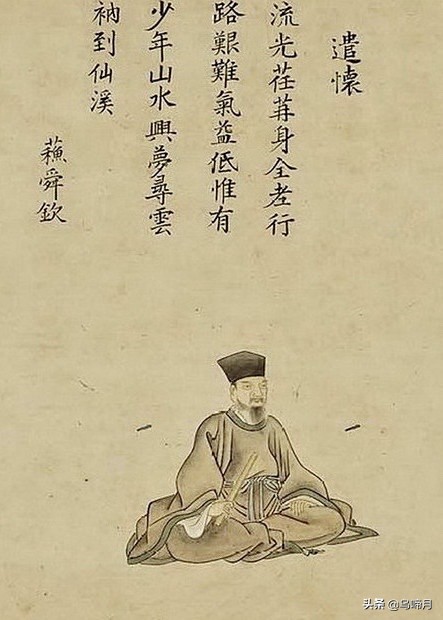 遣懷
流光荏苒身全老行
路艱難氣益低惟有
少年山水興夢尋雲
衲到仙溪
蘓舜欽
头条 @乌蹄月